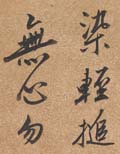 染輕搥
無心勿